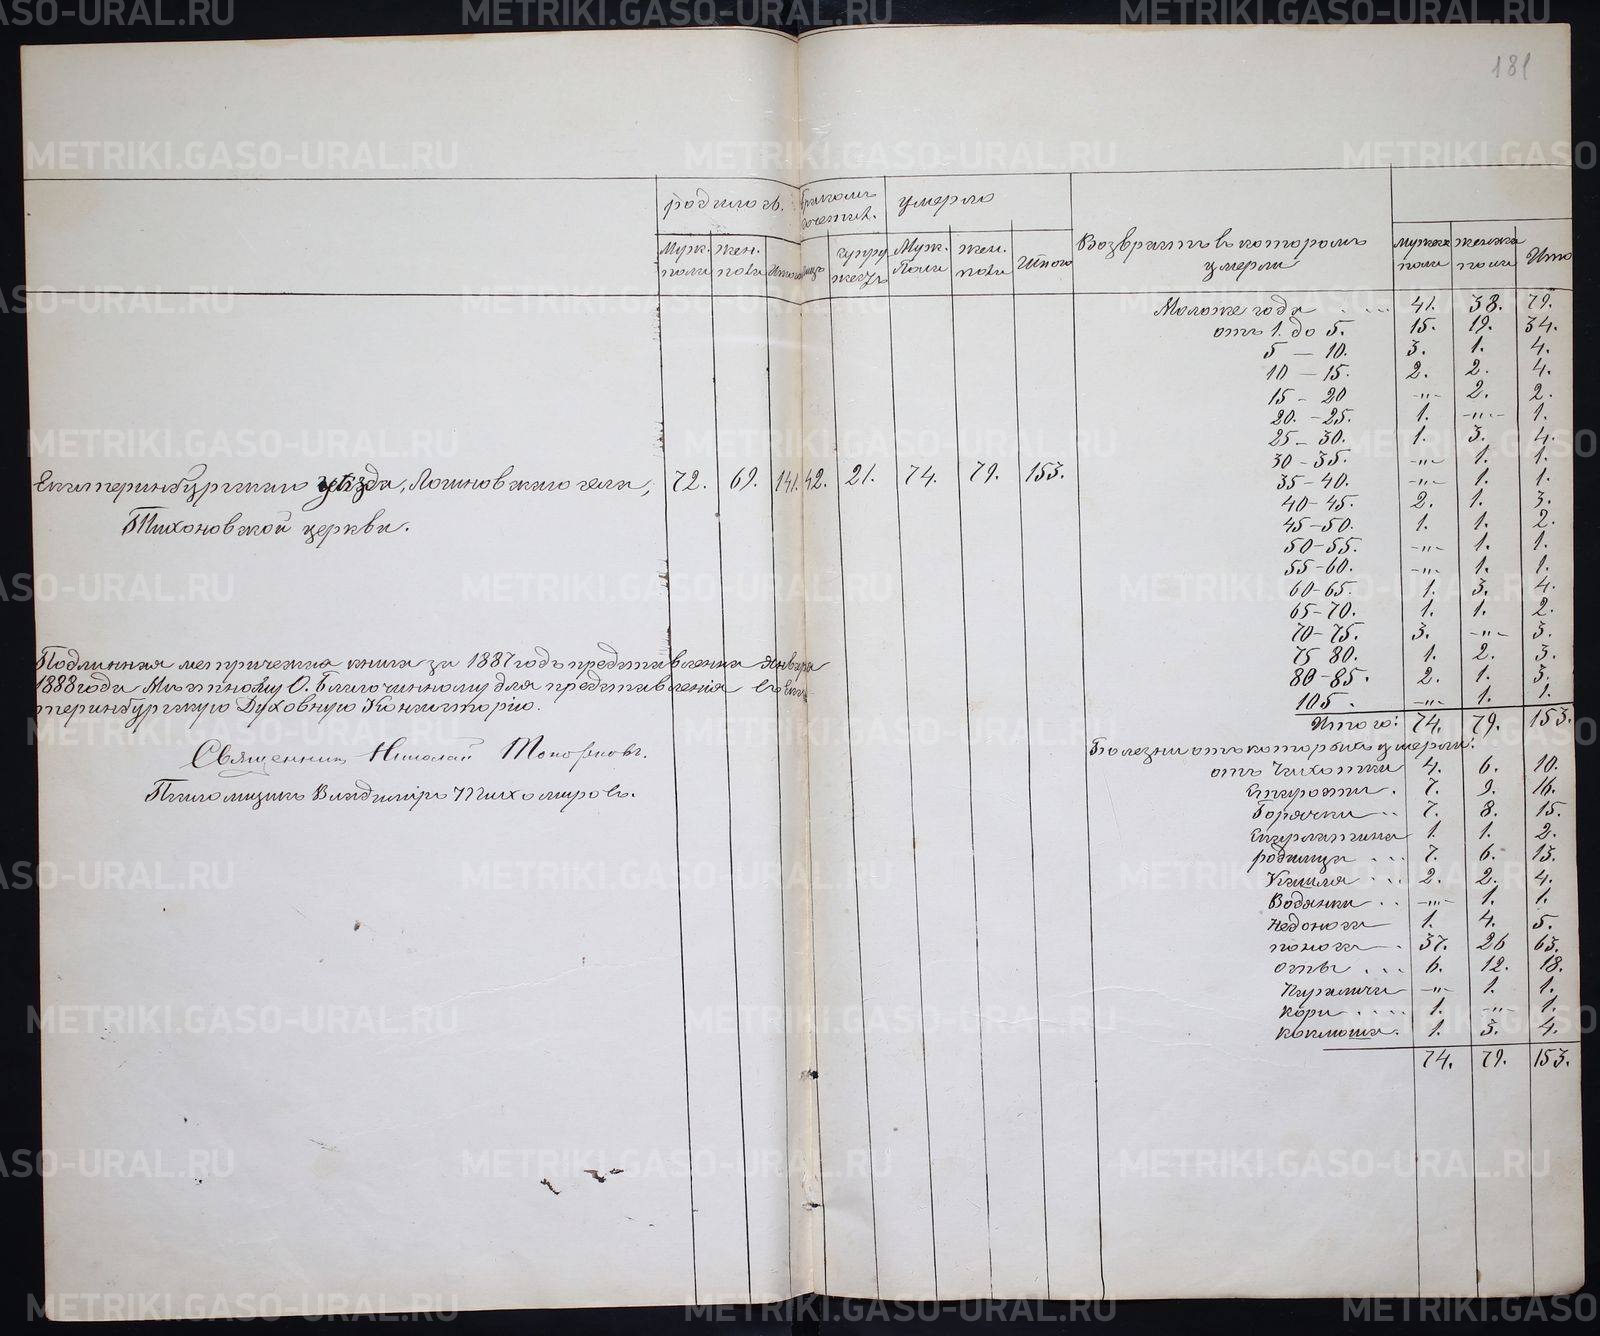 181
родилось.
бракомъ сочетан.
умерло
Муж. пола
жен. пола
Итого
лицъ
супружествъ
Муж. Пола
жен. пола
Итого
Возврастъ въ которомъ умерли
мужска пола
женска пола
Ито
Екатеринбургскаго уѣзда, Логиновскаго села, 72. 69. 141. 42. 21. 74. 79. 153.
Тихоновской церкви.
Подлинная метрическая книга за 1887 годъ представлена Января
1888 года Мѣстному О. Благочинному для представленія въ Ека-
теринбургскую Духовную Консисторію.
Священникъ Николай Топорковъ.
Псаломщикъ Владиміръ Тихомировъ.
Моложе года 41. 38. 79.
отъ 1. до 5. 15. 19. 34.
5 — 10. 3. 1. 4.
10 — 15. 2. 2. 4.
15 - 20 -"- 2. 2.
20. - 25. 1. -"- 1.
25 - 30. 1. 3. 4.
30 - 35. -"- 1. 1.
35 - 40. -"- 1. 1.
40 - 45. 2. 1. 3.
45 - 50. 1. 1. 2.
50 - 55. -"- 1. 1.
55 - 60. -"- 1. 1.
60 - 65. 1. 3. 4.
65 - 70. 1. 1. 2.
70 - 75. 3. -"- 3.
75 80. 1. 2. 3.
80 - 85. 2. 1. 3.
105. -"- 1. 1.
Итого: 74. 79. 153.
Болезни отъ которыхъ умерли:
отъ Чахотки 4. 6. 10.
Старости. 7. 9. 16.
Горячки 7. 8. 15.
Скарлатина 1. 1. 2.
родимца 7. 6. 13.
Кашля 2. 2. 4.
Водянки -"- 1. 1.
Недоноса 1. 4. 5.
поноса 37. 26 63.
оспы 6. 12. 18.
Паралича -"- 1. 1.
кори 1. -"- 1.
коклюша. 1. 3. 4.
74. 79. 153.
METRIKI.GASO-URAL.RU